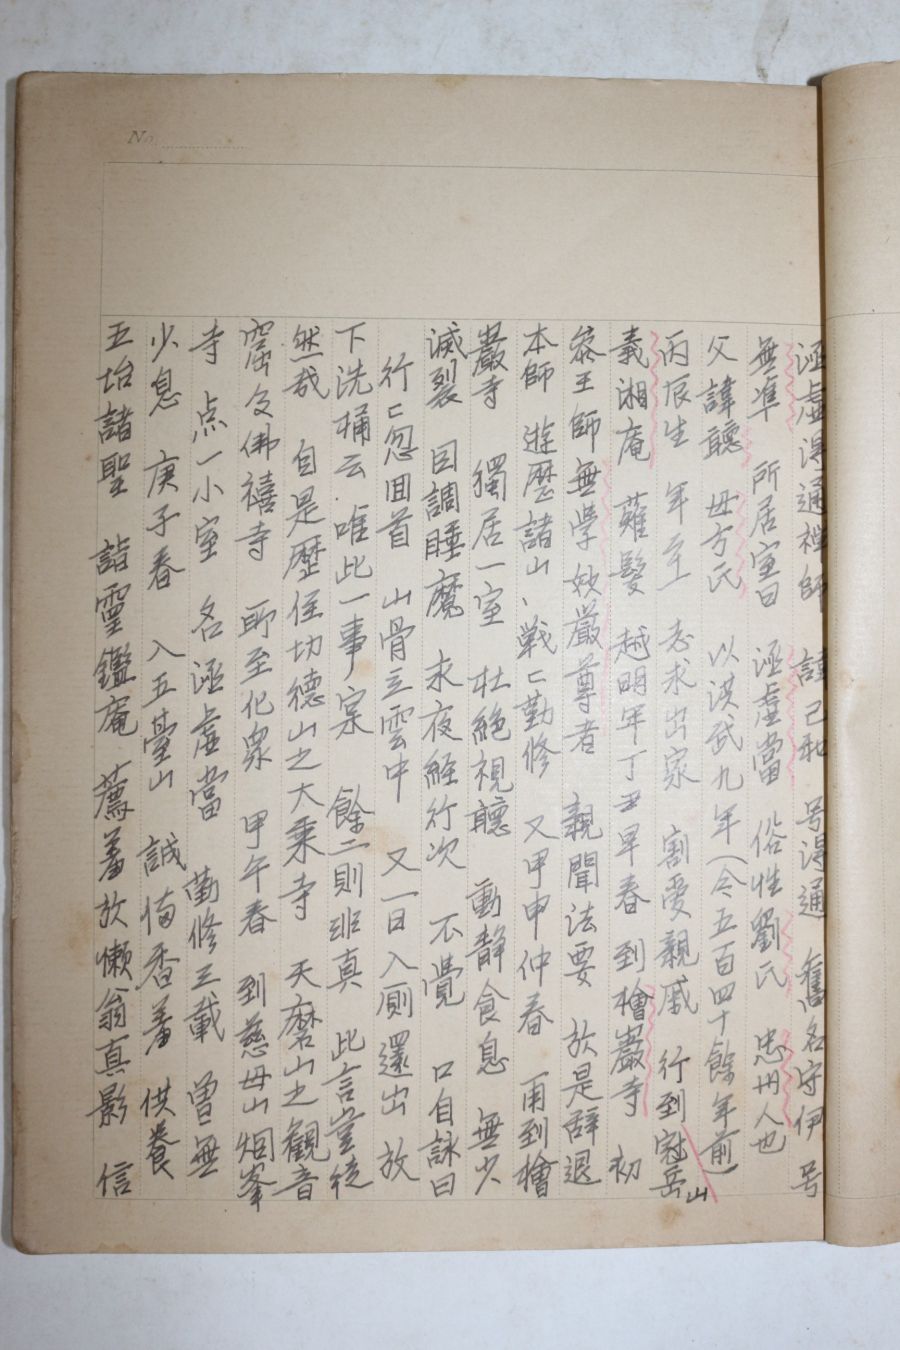 No.
涵虛得通禪師 諱己和 号淂通 舊名守伊 号
無準 所居室曰 涵虛當 俗性劉氏 忠州人也
父諱聽 母方氏 以洪武九年(今五百四十餘年前)
丙辰生 年至 志求出家 割愛親戚 行到冠岳山
義湘庵 薙髮 越明年丁丑早春 到檜巖寺 初
叅王師無學妙嚴尊者 親聞法要 於是辞退
本師 遊歷諸山、戰々勤修 又甲申仲春 甬到檜
巖寺 獨居一室 杜絶視聽 動静食息 無少
滅裂 因調睡魔 求夜經行次 不覺 口自詠曰
行々忽回首 山骨立雲中 又一日入厠還出 放
下洗桶云 唯此一事实 餘二則班真 此言豈徒
然哉 自是歷住功德山之大乘寺 天磨山之觀音
窟及佛禧寺 所至化衆 甲午春 到慈母山烟峯
寺 点一小室 名涵虛當 勤修三載 曾無
少息 庚子春 入五臺山 誠俻香羞 供養
五坮諸聖 詣靈鑑庵 薦羞於懶翁真影 信